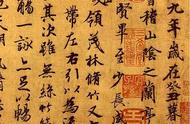 九年歲在癸丑暮
會稽山陰之蘭亭
賢畢至少長咸
領茂林脩竹又
帶左右引以為流
其次雖無絲竹
觴一詠亦足以暢